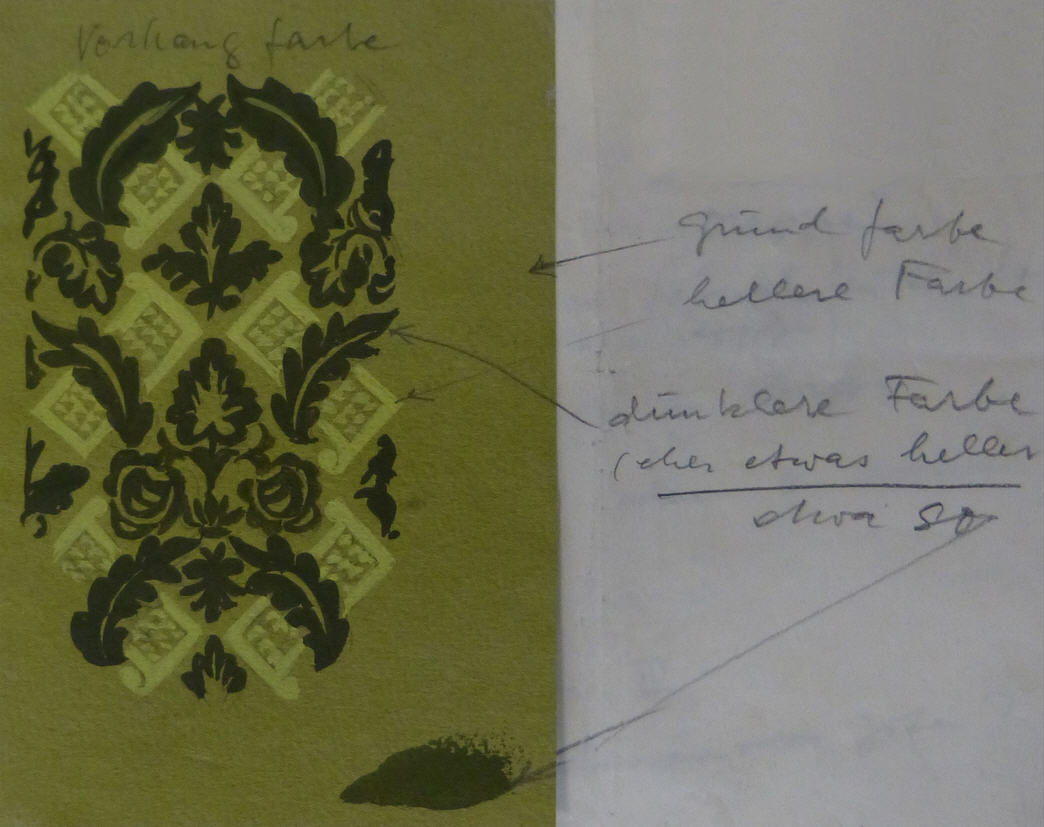 Vorhang farbe
Grund farbe
hellere Farbe
dunklere Farbe
(eher etwas heller
etwa so